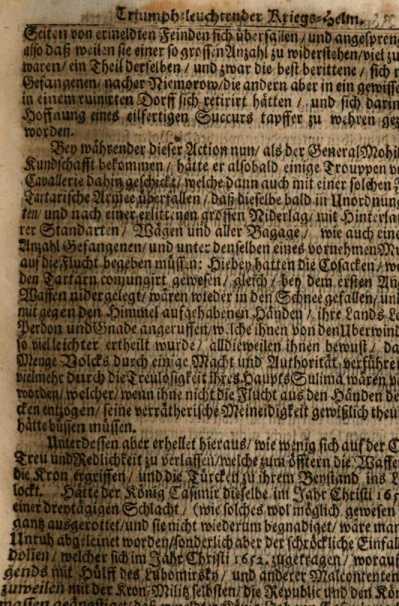 Triumph-leuchtender Kriegs-Helm.
Seiten von ermeldten Feinden sich überfallen / und angespreng
also daß weilen sie einer so grossen Anzahl zu widerstehen / viel zu
waren / ein Theil derselben / und zwar die best berittene / sich
Gefangenen / nacher Niemorow / die andern aber in ein gewisse
in einem ruinirten Dorff sich retirirt hätten / und sich darin
Hoffnung eines eilfertigen Succurs tapffer zu wehren ge
worden.
Bey währender dieser Action nun / als der General Mohil
Kundschafft bekommen / hätte er alsobald einige Trouppen v
Cavallerie dahin geschickt / welche dann auch mit einer solchen
Tartarische Armee überfallen / daß dieselbe bald in Unordnung
ten / und nach einer erlittenen grossen Niderlag / mit Hinterla
rer Standarten / Wägen und aller Bagage / wie auch eine
Anzahl Gefangenen / und unter denselben eines vornehmen Mu
auf die Flucht begeben müssen: Hiebey hatten die Cosacken / wo
den Tartarn conjungirt gewesen / gleich bey dem ersten An
Waffen nidergelegt / wären wieder in den Schnee gefallen / un
mit gegen den Himmel aufgehabenen Händen / ihre Lands L
Perdon und Gnade angeruffen / welche ihnen von den Uberwint
so vielleichter ertheilt wurde / alldieweilen ihnen bewust / da
Menge Volcks durch einige Macht und Authorität verführe
vielmehr durch die Treulosigkeit ihres Haupts Sulima wären
worden / welcher / wenn ihne nicht die Flucht aus den Händen de
cken entzogen / seine verrätherische Meineidigkeit gewißlich theu
hätte büssen müssen.
Unterdessen aber erhellet hieraus / wie wenig sich auf der C
Treu und Redlichkeit zu verlassen / welche zum öfftern die Waffe
die Kron ergriffen / und die Türcken zu ihrem Beystand ins L
lockt. Hätte der König Casimir dieselbe im Jahr Christi 165
einer dreytägigen Schlacht / (wie solches wol möglich gewesen
gantz ausgerottet / und sie nicht wiederum begnadiget / wäre man
Unruh abgeleinet worden / sonderlich aber der schröckliche Einfal
dolien / welcher sich im Jahr Christi 1652. zugetragen / worauf
gends mit Hülff des Lubomirsky / und anderer Malcontenten
zuweilen mit der Kron-Militz selbsten / die Republic und den Kön